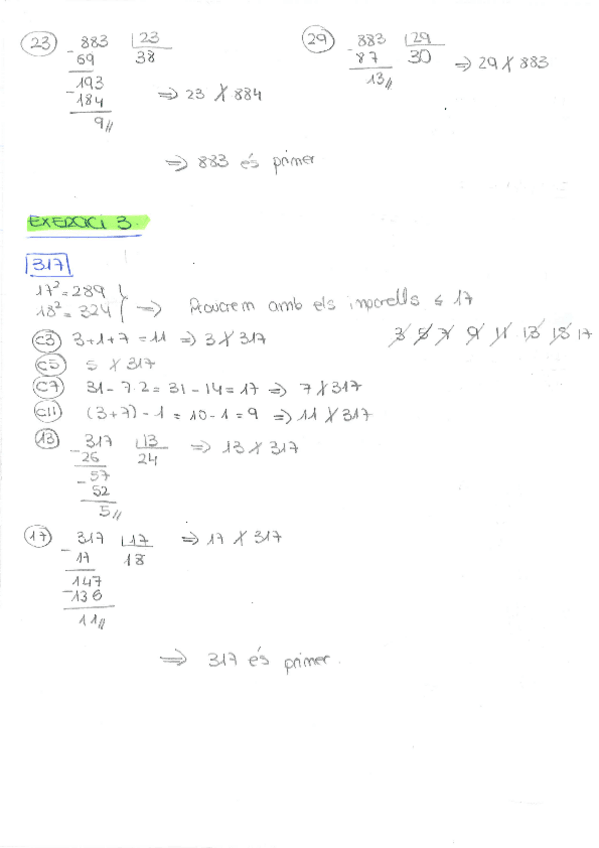 23 883 |23
- 69 38
193
- 184 ⇒ 23 ∤ 884
9//
29 883 |29
- 87 30 ⇒ 29 ∤ 883
13//
⇒ 883 és primer
EXERCICI 3.
317
17² = 289
18² = 324 ⇒ Provarem amb els imparells ≤ 17
3 5 7 9 11 13 15 17
C3 3+1+7 = 11 ⇒ 3 ∤ 317
C5 5 ∤ 317
C7 31 - 7·2 = 31 - 14 = 17 ⇒ 7 ∤ 317
C11 (3+7) - 1 = 10 - 1 = 9 ⇒ 11 ∤ 317
13 317 |13 ⇒ 13 ∤ 317
- 26 24
- 57
52
5//
17 317 |17 ⇒ 17 ∤ 317
- 17 18
147
- 136
11//
⇒ 317 és primer.